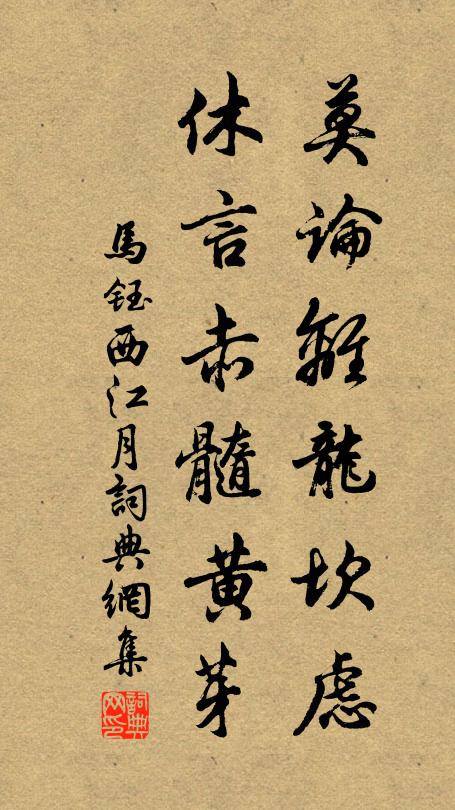 莫論離龍坎虑
休言赤髓黃芽
馬鈺西江月詞典網集
詞典
网印